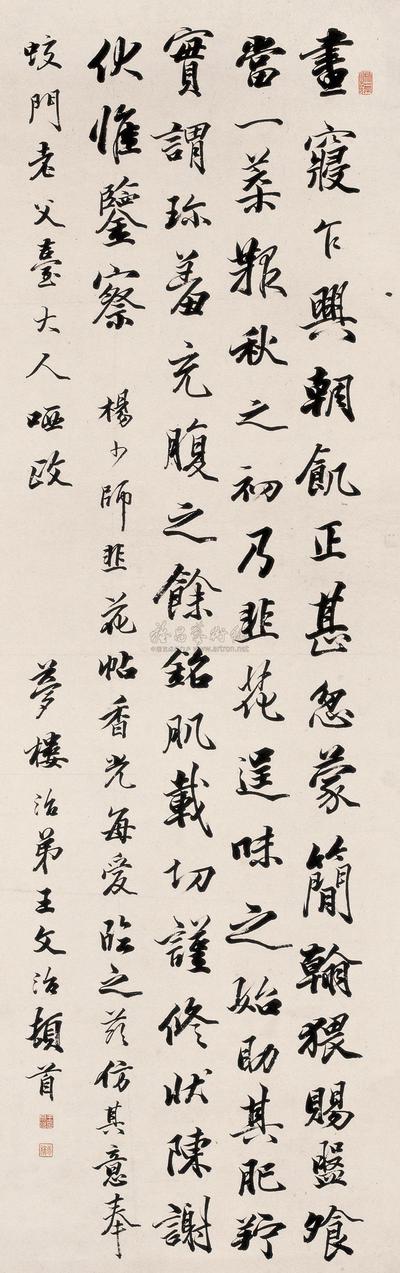 晝寢乍興朝飢正甚忽蒙簡翰猥賜盤飧
當一葉報秋之初乃韭花逞味之始助其肥羜
實謂珍羞充腹之餘銘肌載切謹修狀陳謝
伏惟鑒察 楊少師韭花帖香光每愛臨之茲仿其意奉
蛟門老父臺大人哂政 夢樓治弟王文治頓首